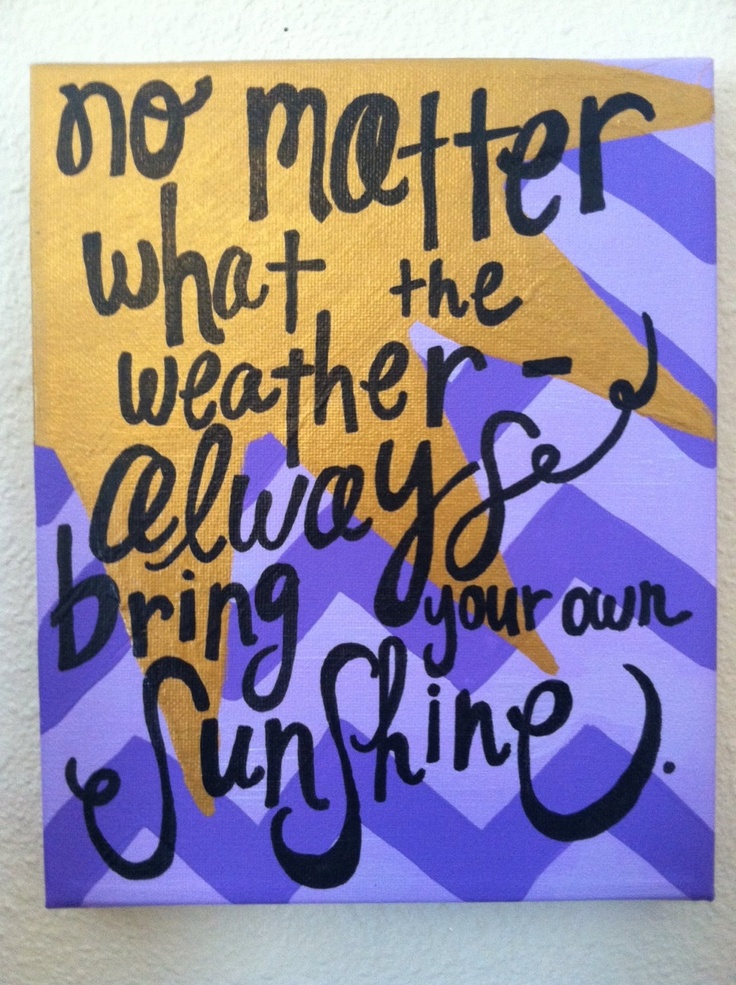 no matter
what the
weather -
always
bring your own
sunshine.